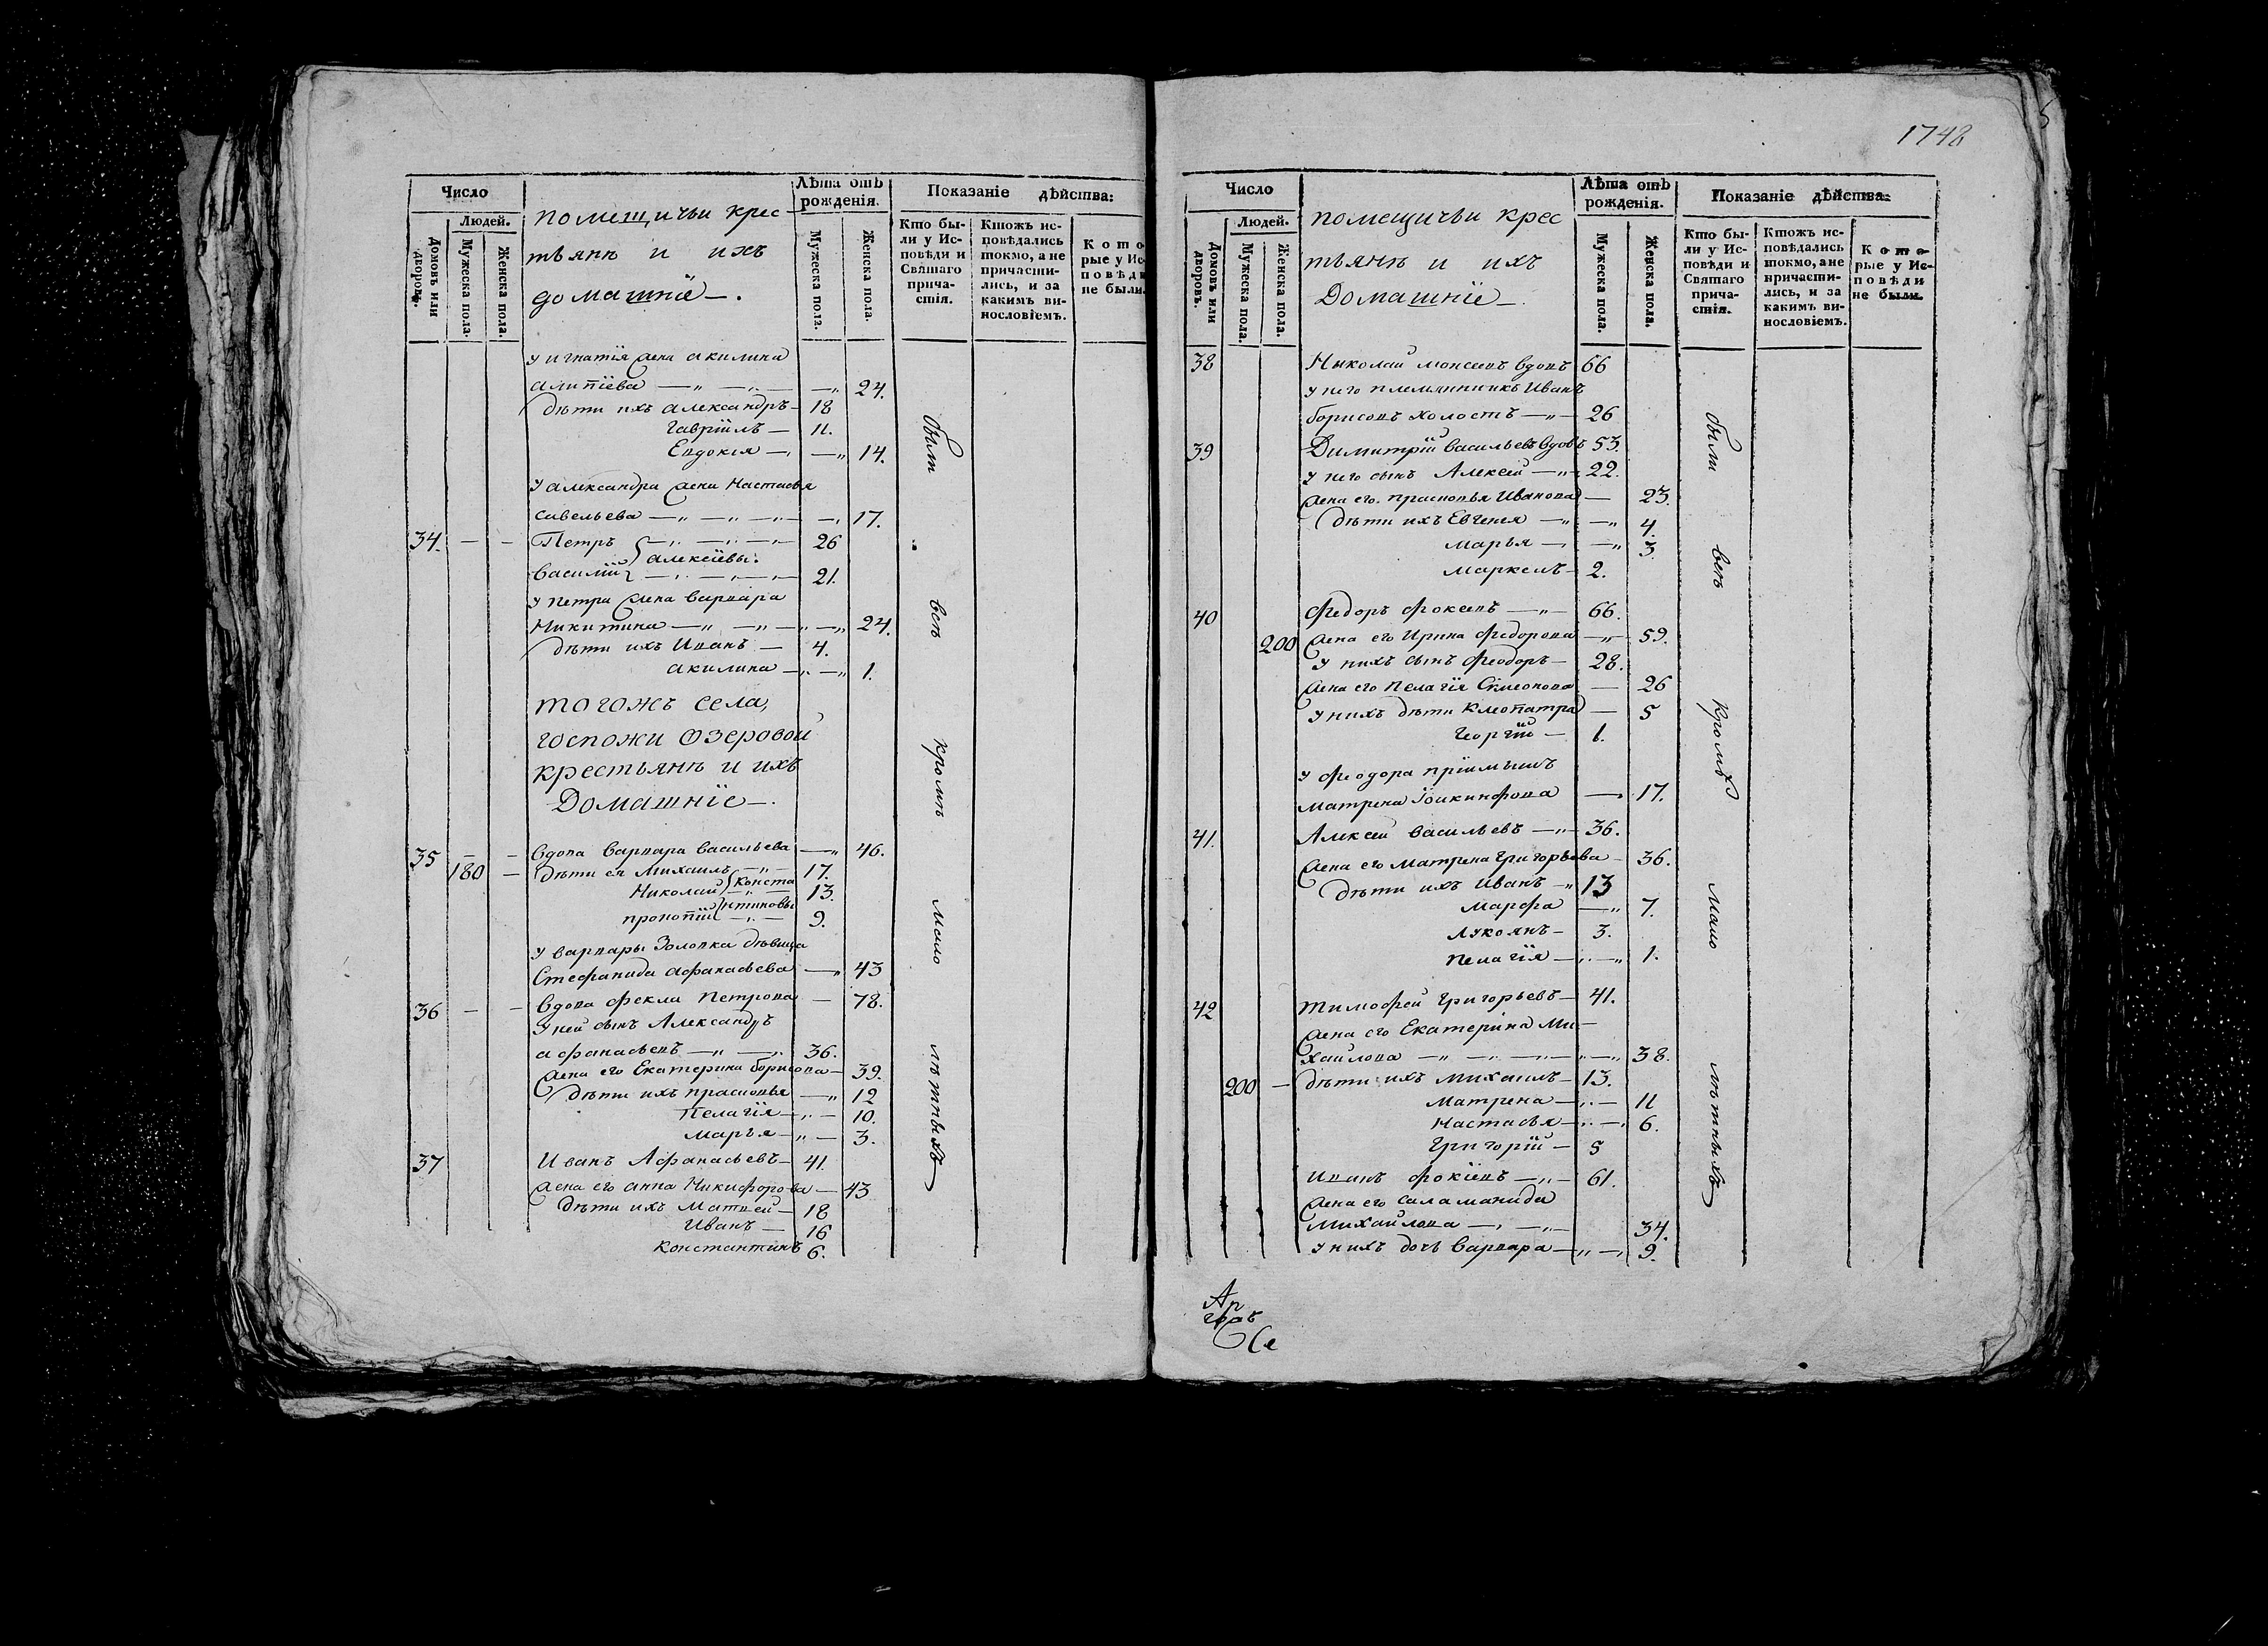 1748
Число
Людей.
Домовъ или дворовъ.
Мужеска пола.
Женска пола.
помещичьи крес
тьянѣ и ихъ
домашніе.
Лѣта отъ рожденія.
Мужеска пола.
Женска пола.
Показаніе дѣйства:
Кто бы-
ли у Ис-
повѣди и
Святаго
прича-
стія.
Ктожъ ис-
повѣдались
токмо, а не
причасти-
лись, и за
какимъ ви-
нословіемъ.
Кото
рые у Ис
повѣди
не были.
у игнатія жена акилина
алипіева 24.
дѣти ихъ александръ 18
гавріилъ 11.
Евдокія 14.
у александра жена Настасья
савельева 17.
34. Петръ 26
алексіевы.
василій 21.
у петра жена варвара
Никитина 24.
дѣти ихъ Иванъ 4.
акилина 1.
тогожъ села,
госпожи Озеровой
крестьянѣ и ихъ
Домашніе
35 вдова варвара васильева 46.
180 дѣти ея михаилъ 17.
Николай конста 13.
нтиновы
прокопій 9.
у варвары золовка дѣвица
Стефанида афанасьева 43
36 вдова фекла петрова 78.
у ней сынъ Александръ
афанасьевъ 36.
жена его Екатерина борисова 39.
дѣти ихъ прасковья 12
Пелагія 10.
марья 3.
37 Иванъ Афанасьевъ 41.
жена его анна Никифорова 43
дѣти ихъ Матвей 18
Иванъ 16
константинъ 6.
были
всѣ
кромѣ
мало
лѣтныхъ
Число
Людей.
Домовъ или дворовъ.
Мужеска пола.
Женска пола.
помещичьи крес
тьянѣ и ихъ
Домашніе
Лѣта отъ рожденія.
Мужеска пола.
Женска пола.
Показаніе дѣйства:
Кто бы-
ли у Ис-
повѣди и
Святаго
прича-
стія.
Ктожъ ис-
повѣдались
токмо, а не
причасти-
лись, и за
какимъ ви-
нословіемъ.
Кото-
рые у Ис-
повѣди
не были.
38 Николай моисеевъ вдовъ 66
у него племянникъ Иванъ
борисовъ холостъ 26
39 Димитрій васильевъ вдовъ 53.
у него сынъ Алексей 22.
жена его прасковья Иванова 23.
дѣти ихъ Евгенія 4.
марья 3.
маркелъ 2.
40 Федоръ фокеевъ 66.
200 жена его Ирина федорова 59.
у нихъ сынъ феодоръ 28.
жена его пелагія Симеонова 26
у нихъ дѣти клеопатра 5
георгій 1.
у феодора пріимышъ
матрена 17.
41. Алексей васильевъ 36.
жена его матрена григорьева 36.
дѣти ихъ иванъ 13
марфа 7.
лукоянъ 3.
пелагія 1.
42 тимофей григорьевъ 41.
жена его Екатерина Ми-
хаилова 38.
200 дѣти ихъ михаилъ 13.
матрена 11
настасья 6.
григорій 5
иванъ фокіевъ 61.
жена его саламанида
михаилова 34.
у нихъ дочь варвара 9.
были
всѣ
кромѣ
мало
лѣтныхъ